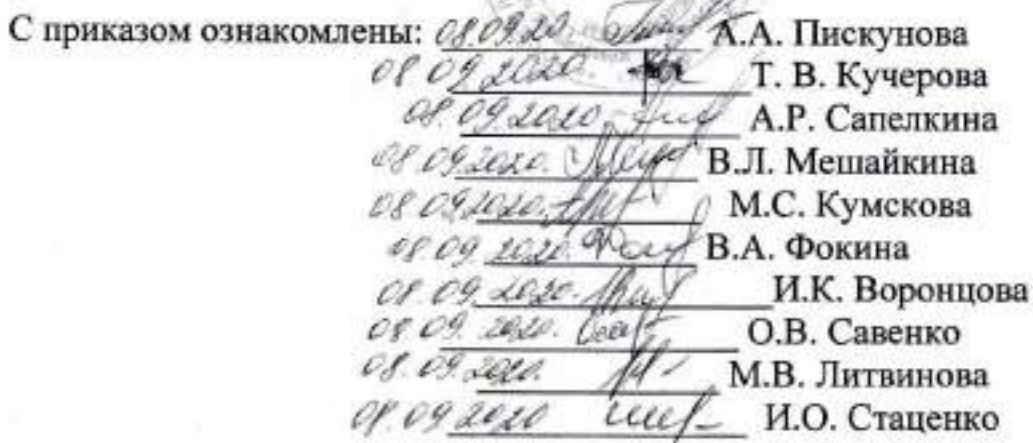 С приказом ознакомлены: 08.09.20. А.А. Пискунова
08.09.2020. Т. В. Кучерова
08.09.2020 А.Р. Сапелкина
08.09.2020. В.Л. Мешайкина
08.09.2020. М.С. Кумскова
08.09.2020. В.А. Фокина
08.09.2020. И.К. Воронцова
08.09.2020. О.В. Савенко
08.09.2020. М.В. Литвинова
08.09.2020 И.О. Стаценко